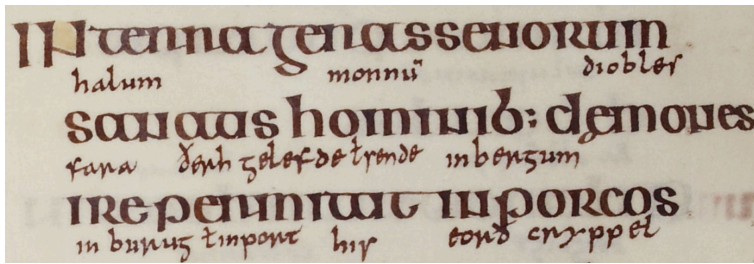 IN terra genassenorum
halum monnū diobles
sanatis hominib: demones
fara ðerh gelefde ł sende in bergum
ire permittit in porcos
in burug ł inport his eorð cryppel